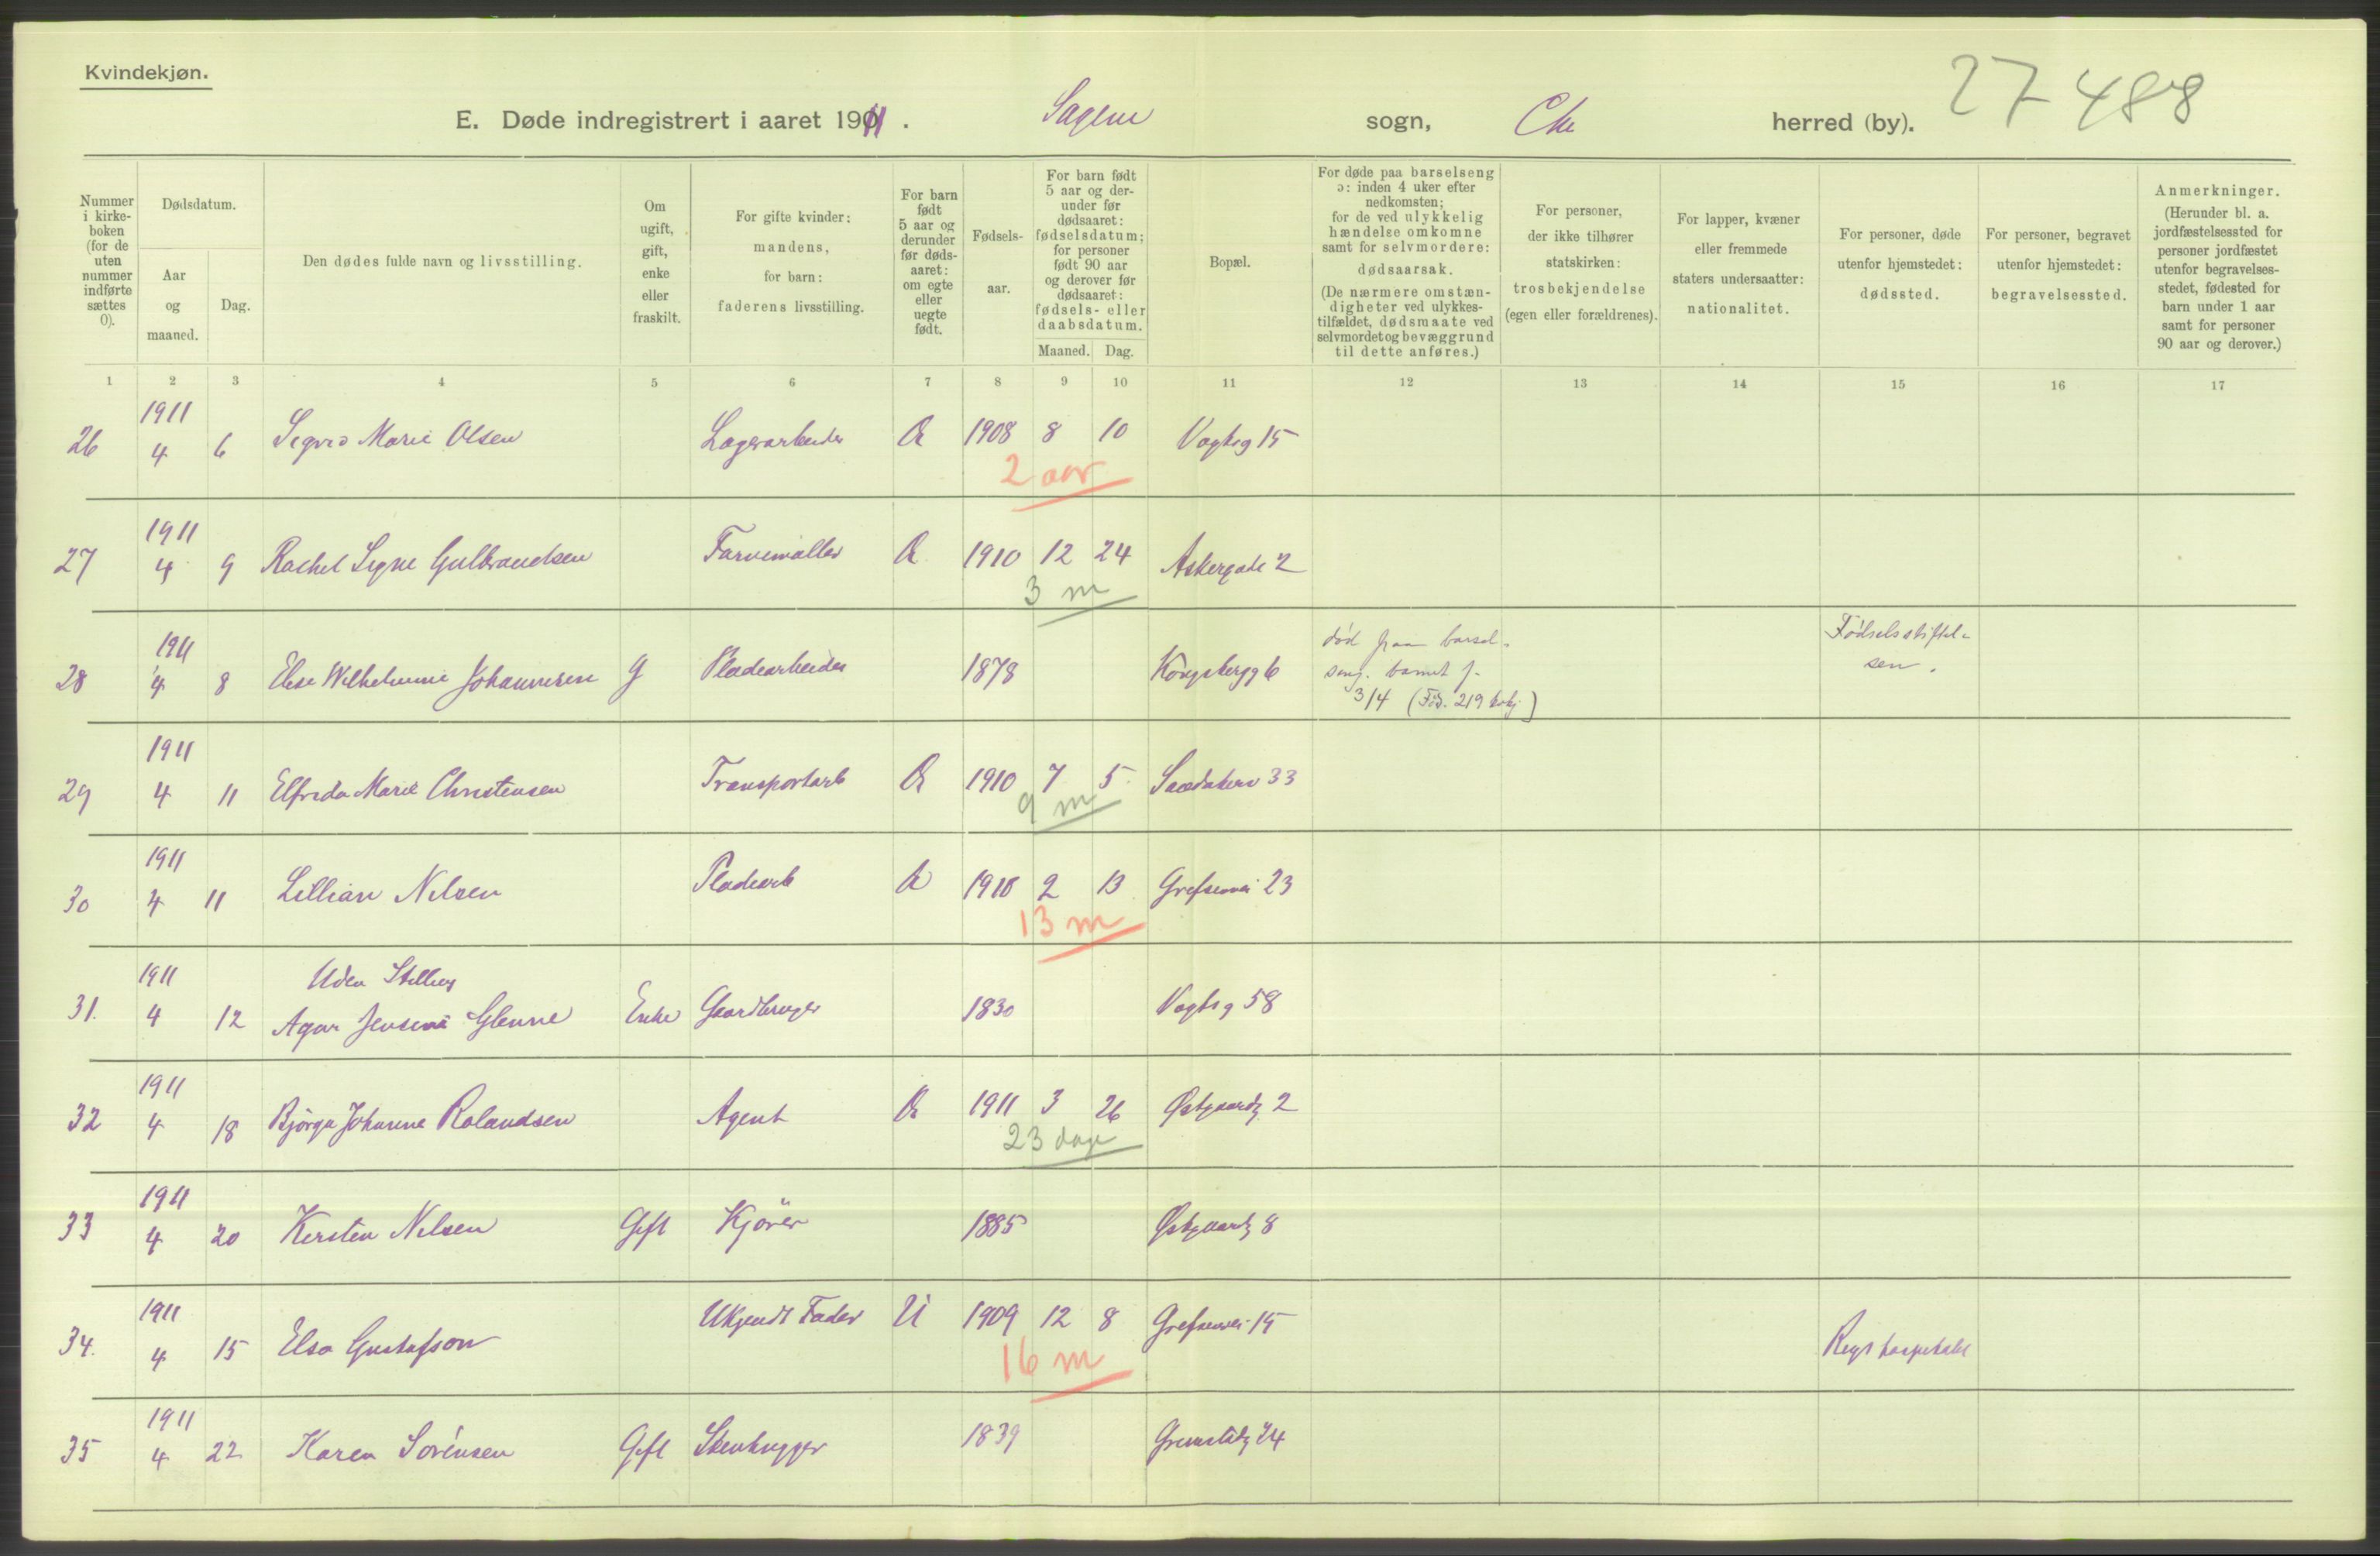 Kvindekjøn.
27 488
E. Døde indregistrert i aaret 1911. Sagene sogn, Chr herred (by).
Nummer i kirke-boken (for de uten nummer indførte sættes 0).
Dødsdatum.
Aar og maaned.
Dag.
Den dødes fulde navn og livsstilling.
Om ugift, gift, enke eller fraskilt.
For gifte kvinder: mandens, for barn: faderens livsstilling.
For barn født 5 aar og derunder før døds-aaret: om egte eller uegte født.
Fødsels-aar.
For barn født 5 aar og der-under før dødsaaret: fødselsdatum; for personer født 90 aar og derover før dødsaaret: fødsels- eller daabsdatum.
Maaned. Dag.
Bopæl.
For døde paa barselseng ɔ: inden 4 uker efter nedkomsten; for de ved ulykkelig hændelse omkomne samt for selvmordere: dødsaarsak. (De nærmere omstæn-digheter ved ulykkes-tilfældet, dødsmaate ved selvmordet og bevæggrund til dette anføres.)
For personer, der ikke tilhører statskirken: trosbekjendelse (egen eller forældrenes).
For lapper, kvæner eller fremmede staters undersaatter: nationalitet.
For personer, døde utenfor hjemstedet: dødssted.
For personer, begravet utenfor hjemstedet: begravelsessted.
Anmerkninger. (Herunder bl. a. jordfæstelsessted for personer jordfæstet utenfor begravelses-stedet, fødested for barn under 1 aar samt for personer 90 aar og derover.)
1 2 3 4 5 6 7 8 9 10 11 12 13 14 15 16 17
1911
26 4 6 Sigrid Marie Olsen Lagerarbeider Æ 1908 8 10 Vogtsg 15
2 aar
1911
27 4 9 Rachel Signe Gulbrandsen Farvemøller Æ 1910 12 24 Askergade 2
3 m
1911
28 4 8 Elise Wilhelmine Johannesen G Pladearbeider 1878 Kongsbergg 6 død paa barsel- seng. barnet f. 3/4 Fødselsstiftel- sen.
1911
29 4 11 Elfrida Marie Christensen Transportarb Æ 1910 7 5 33
9 m
1911
30 4 11 Lillian Nilsen Pladearb Æ 1910 2 13 Grefsenvei 23
13 m
1911 Uden Stilling
31. 4 12 Agar Glenne Enke Gaardbruger 1830 Vogtsg 58
1911
32 4 18 Bjørga Johanne Rolandsen Agent Æ 1911 3 26 Østgaardg 2
23 dage
1911
33 4 20 Kirsten Nilsen Gift Kjører 1885 Østgaardg 8
1911
34. 4 15 Elsa Gustafson Ukjendt Fader U 1909 12 8 Grefsenvei 15 Rigshospitalet
16 m
1911
35 4 22 Karen Sørensen Gift Stenhugger 1839 Grimstadg 24